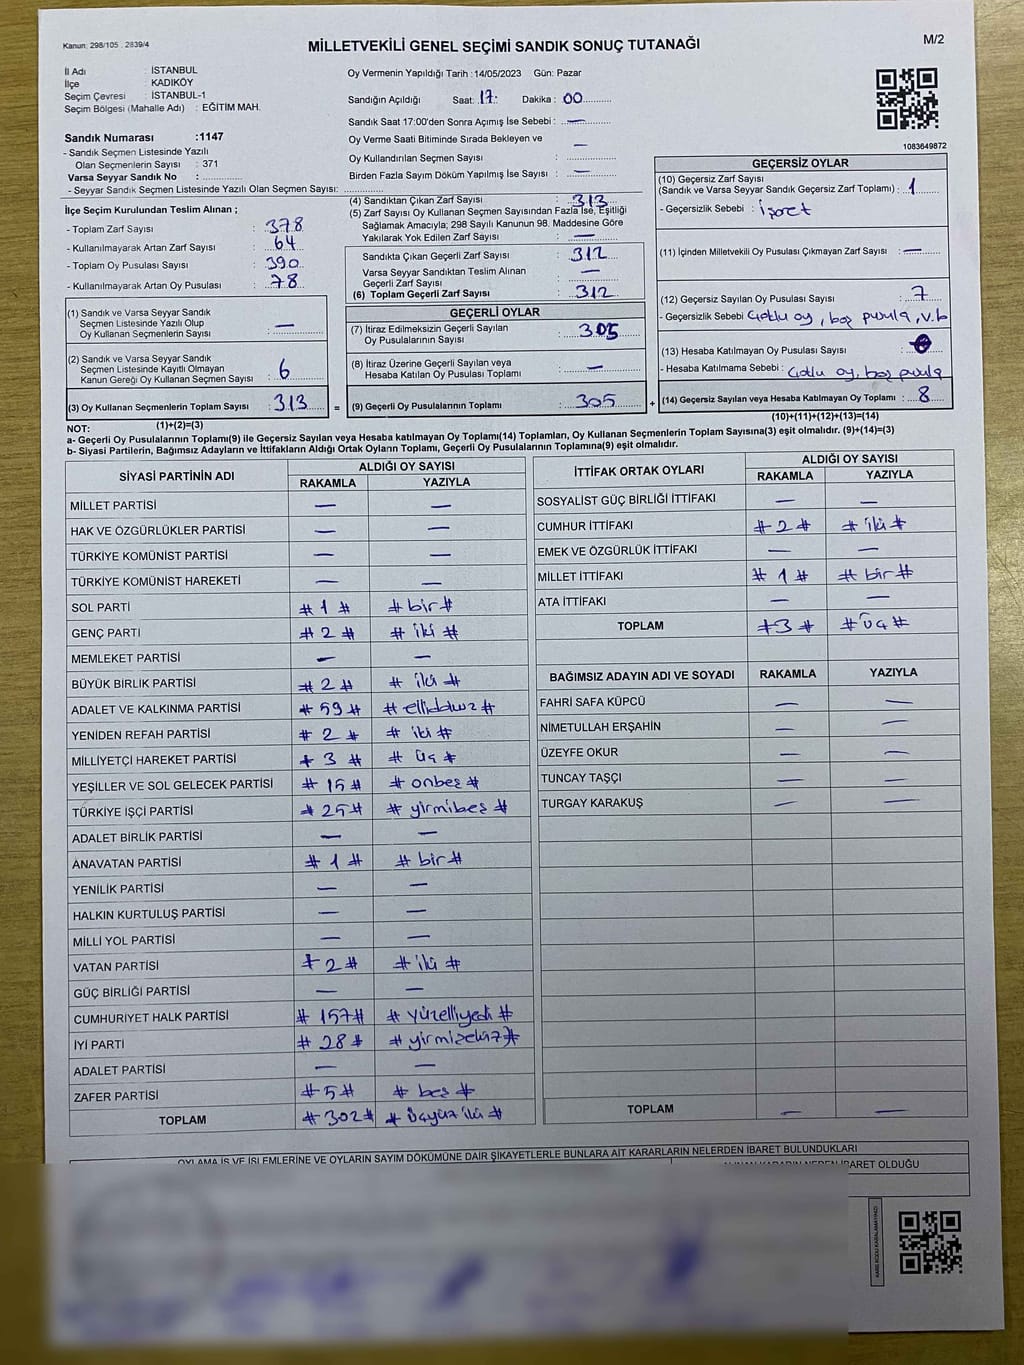 Kanun: 298/105 . 2839/4
MİLLETVEKİLİ GENEL SEÇİMİ SANDIK SONUÇ TUTANAĞI
M/2
İl Adı : İSTANBUL
İlçe : KADIKÖY
Seçim Çevresi : İSTANBUL-1
Seçim Bölgesi (Mahalle Adı) : EĞİTİM MAH.
Sandık Numarası :1147
- Sandık Seçmen Listesinde Yazılı
Olan Seçmenlerin Sayısı : 371
Varsa Seyyar Sandık No :
- Seyyar Sandık Seçmen Listesinde Yazılı Olan Seçmen Sayısı:
Oy Vermenin Yapıldığı Tarih : 14/05/2023 Gün: Pazar
Sandığın Açıldığı Saat: 17 Dakika : 00
Sandık Saat 17:00'den Sonra Açımış İse Sebebi : —
Oy Verme Saati Bitiminde Sırada Bekleyen ve
Oy Kullandırılan Seçmen Sayısı : —
Birden Fazla Sayım Döküm Yapılmış İse Sayısı : —
1083649872
İlçe Seçim Kurulundan Teslim Alınan ;
- Toplam Zarf Sayısı : 378
- Kullanılmayarak Artan Zarf Sayısı : 64
- Toplam Oy Pusulası Sayısı : 390
- Kullanılmayarak Artan Oy Pusulası : 78
(1) Sandık ve Varsa Seyyar Sandık
Seçmen Listesinde Yazılı Olup
Oy Kullanan Seçmenlerin Sayısı : —
(2) Sandık ve Varsa Seyyar Sandık
Seçmen Listesinde Kayıtlı Olmayan
Kanun Gereği Oy Kullanan Seçmen Sayısı : 6
(3) Oy Kullanan Seçmenlerin Toplam Sayısı : 313
(1)+(2)=(3)
(4) Sandıktan Çıkan Zarf Sayısı : 313
(5) Zarf Sayısı Oy Kullanan Seçmen Sayısından Fazla İse, Eşitliği
Sağlamak Amacıyla; 298 Sayılı Kanunun 98. Maddesine Göre
Yakılarak Yok Edilen Zarf Sayısı : —
Sandıkta Çıkan Geçerli Zarf Sayısı : 312
Varsa Seyyar Sandıktan Teslim Alınan
Geçerli Zarf Sayısı : —
(6) Toplam Geçerli Zarf Sayısı : 312
GEÇERLİ OYLAR
(7) İtiraz Edilmeksizin Geçerli Sayılan
Oy Pusulalarının Sayısı : 305
(8) İtiraz Üzerine Geçerli Sayılan veya
Hesaba Katılan Oy Pusulası Toplamı : —
= (9) Geçerli Oy Pusulalarının Toplamı : 305 +
GEÇERSİZ OYLAR
(10) Geçersiz Zarf Sayısı
(Sandık ve Varsa Seyyar Sandık Geçersiz Zarf Toplamı) : 1
- Geçersizlik Sebebi : İşaret
(11) İçinden Milletvekili Oy Pusulası Çıkmayan Zarf Sayısı : —
(12) Geçersiz Sayılan Oy Pusulası Sayısı : 7
- Geçersizlik Sebebi : Çoklu oy, boş pusula, v.b
(13) Hesaba Katılmayan Oy Pusulası Sayısı :
- Hesaba Katılmama Sebebi : Çoklu oy, boş pusula
(14) Geçersiz Sayılan veya Hesaba Katılmayan Oy Toplamı : 8
(10)+(11)+(12)+(13)=(14)
NOT:
a- Geçerli Oy Pusulalarının Toplamı(9) ile Geçersiz Sayılan veya Hesaba katılmayan Oy Toplamı(14) Toplamları, Oy Kullanan Seçmenlerin Toplam Sayısına(3) eşit olmalıdır. (9)+(14)=(3)
b- Siyasi Partilerin, Bağımsız Adayların ve İttifakların Aldığı Ortak Oyların Toplamı, Geçerli Oy Pusulalarının Toplamına(9) eşit olmalıdır.
SİYASİ PARTİNİN ADI ALDIĞI OY SAYISI
RAKAMLA YAZIYLA
MİLLET PARTİSİ — —
HAK VE ÖZGÜRLÜKLER PARTİSİ — —
TÜRKİYE KOMÜNİST PARTİSİ — —
TÜRKİYE KOMÜNİST HAREKETİ — —
SOL PARTİ # 1 # # bir #
GENÇ PARTİ # 2 # # iki #
MEMLEKET PARTİSİ — —
BÜYÜK BİRLİK PARTİSİ # 2 # # iki #
ADALET VE KALKINMA PARTİSİ # 59 # # ellidokuz #
YENİDEN REFAH PARTİSİ # 2 # # iki #
MİLLİYETÇİ HAREKET PARTİSİ # 3 # # üç #
YEŞİLLER VE SOL GELECEK PARTİSİ # 15 # # onbeş #
TÜRKİYE İŞÇİ PARTİSİ # 25 # # yirmibeş #
ADALET BİRLİK PARTİSİ — —
ANAVATAN PARTİSİ # 1 # # bir #
YENİLİK PARTİSİ — —
HALKIN KURTULUŞ PARTİSİ — —
MİLLİ YOL PARTİSİ — —
VATAN PARTİSİ # 2 # # iki #
GÜÇ BİRLİĞİ PARTİSİ — —
CUMHURİYET HALK PARTİSİ # 157 # # yüzelliyedi #
İYİ PARTİ # 28 # # yirmisekiz #
ADALET PARTİSİ — —
ZAFER PARTİSİ # 5 # # beş #
TOPLAM # 302 # # üçyüz iki #
İTTİFAK ORTAK OYLARI ALDIĞI OY SAYISI
RAKAMLA YAZIYLA
SOSYALİST GÜÇ BİRLİĞİ İTTİFAKI — —
CUMHUR İTTİFAKI # 2 # # iki #
EMEK VE ÖZGÜRLÜK İTTİFAKI — —
MİLLET İTTİFAKI # 1 # # bir #
ATA İTTİFAKI — —
TOPLAM # 3 # # üç #
BAĞIMSIZ ADAYIN ADI VE SOYADI RAKAMLA YAZIYLA
FAHRİ SAFA KÜPCÜ — —
NİMETULLAH ERŞAHİN — —
ÜZEYFE OKUR — —
TUNCAY TAŞÇI — —
TURGAY KARAKUŞ — —
TOPLAM — —
OYLAMA İŞ VE İŞLEMLERİNE VE OYLARIN SAYIM DÖKÜMÜNE DAİR ŞİKAYETLERLE BUNLARA AİT KARARLARIN NELERDEN İBARET BULUNDUKLARI
ALINAN KARARIN NEDEN İBARET OLDUĞU